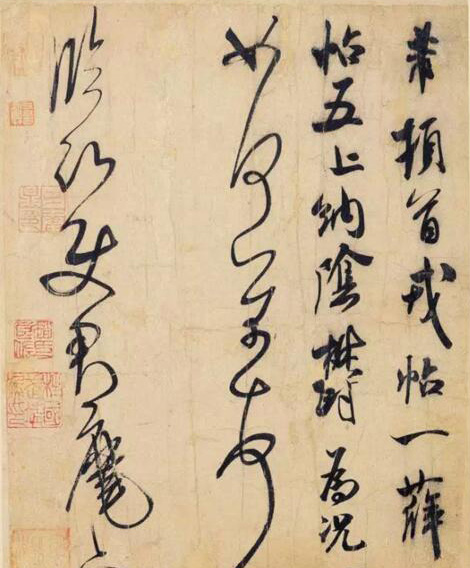 芾頓首戎帖一薛
帖五上納陰鬱為况
如何芾頓首
臨沂使君麾下